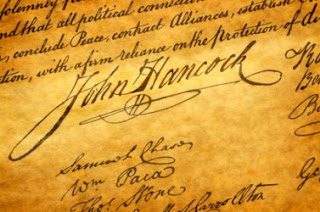 solemnly
and that all political connection
conclude Peace, contract Alliances, establish
tion, with a firm reliance on the protection of
John Hancock
Samuel Chase
Wm Paca
Thos Stone
Carrollton